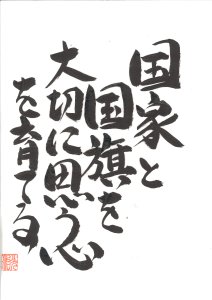 国家と
国旗を
大切に思う心
を育てる